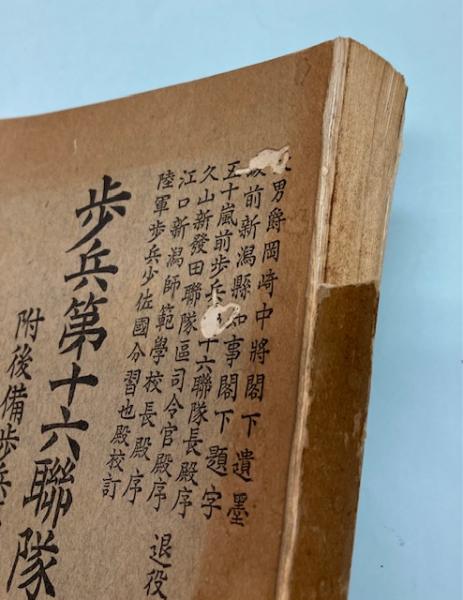 男爵岡崎中將閣下遺墨
前新潟縣知事閣下題字
五十嵐前歩兵十六聯隊長殿序
久山新發田聯隊區司令官殿序
江口新潟師範學校長殿序
陸軍歩兵少佐國分習也殿校訂
退役
歩兵第十六聯隊
附後備歩兵